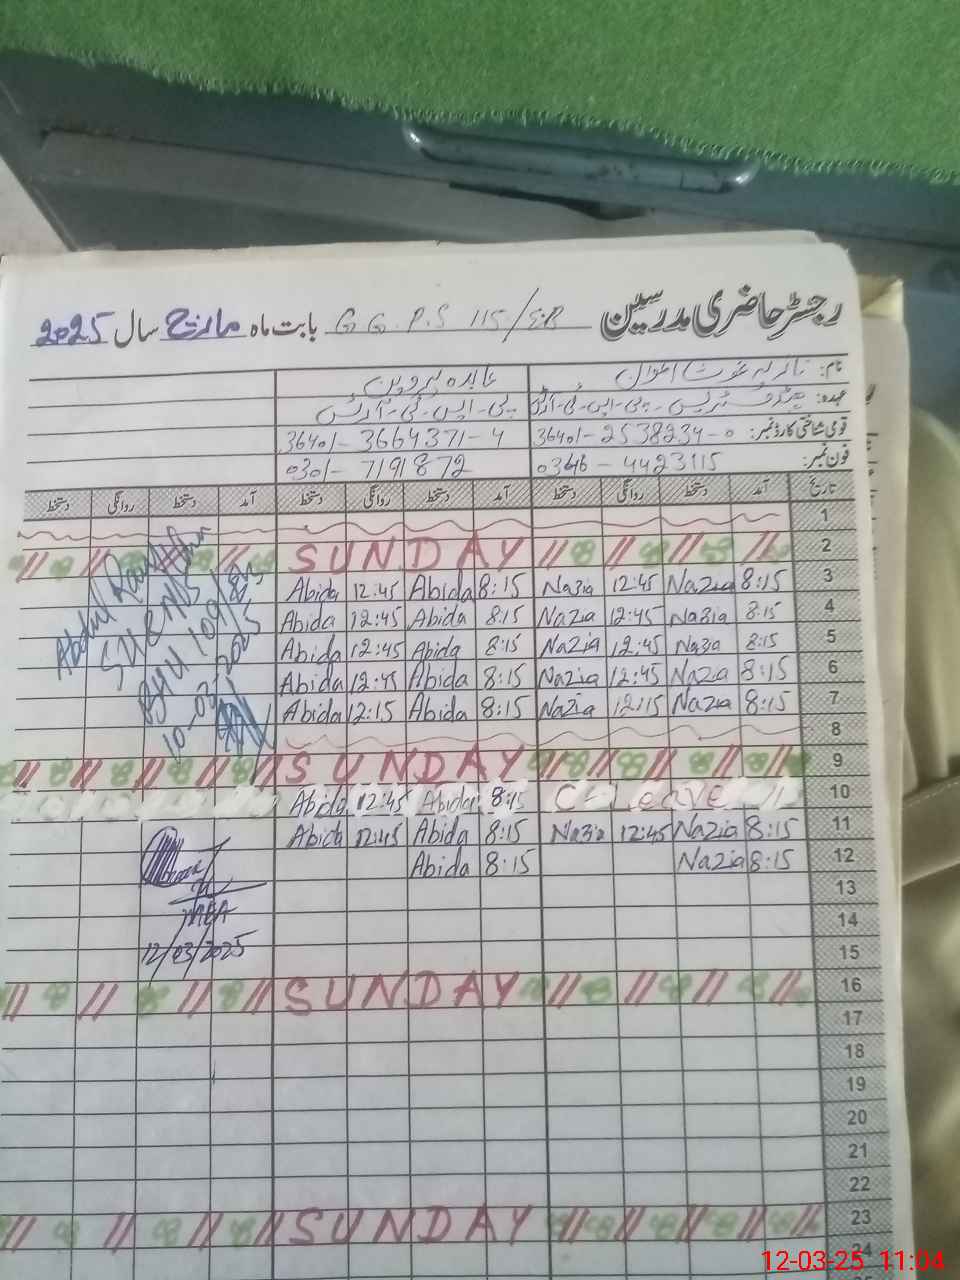 رجسٹر حاضری مدرسین G.G.P.S 115/EB بابت ماہ مارچ سال 2025
نام: نازیہ غوث اعوان عابدہ پروین
عہدہ: پی-ایس-ٹی-آرٹس
قومی شناختی کارڈ نمبر: 36401-2538234-0 36401-3664371-4
فون نمبر: 0346-4423115 0301-7191872
تاریخ آمد دستخط روانگی دستخط آمد دستخط روانگی دستخط آمد دستخط روانگی دستخط
1
SUNDAY 2
Abida 12:45 Abida 8:15 Nazia 12:45 Nazia 8:15 3
Abida 12:45 Abida 8:15 Nazia 12:45 Nazia 8:15 4
Abida 12:45 Abida 8:15 Nazia 12:45 Nazia 8:15 5
Abida 12:45 Abida 8:15 Nazia 12:45 Nazia 8:15 6
Abida 12:15 Abida 8:15 Nazia 12:15 Nazia 8:15 7
8
Abdul
10-03-2025
SUNDAY 9
Abida 12:45 Abida 8:15 C-Leave 10
Abida 12:45 Abida 8:15 Nazia 12:45 Nazia 8:15 11
Abida 8:15 Nazia 8:15 12
13
MEA 14
12/03/2025 15
SUNDAY 16
17
18
19
20
21
22
SUNDAY 23
24
12-03-25 11:04